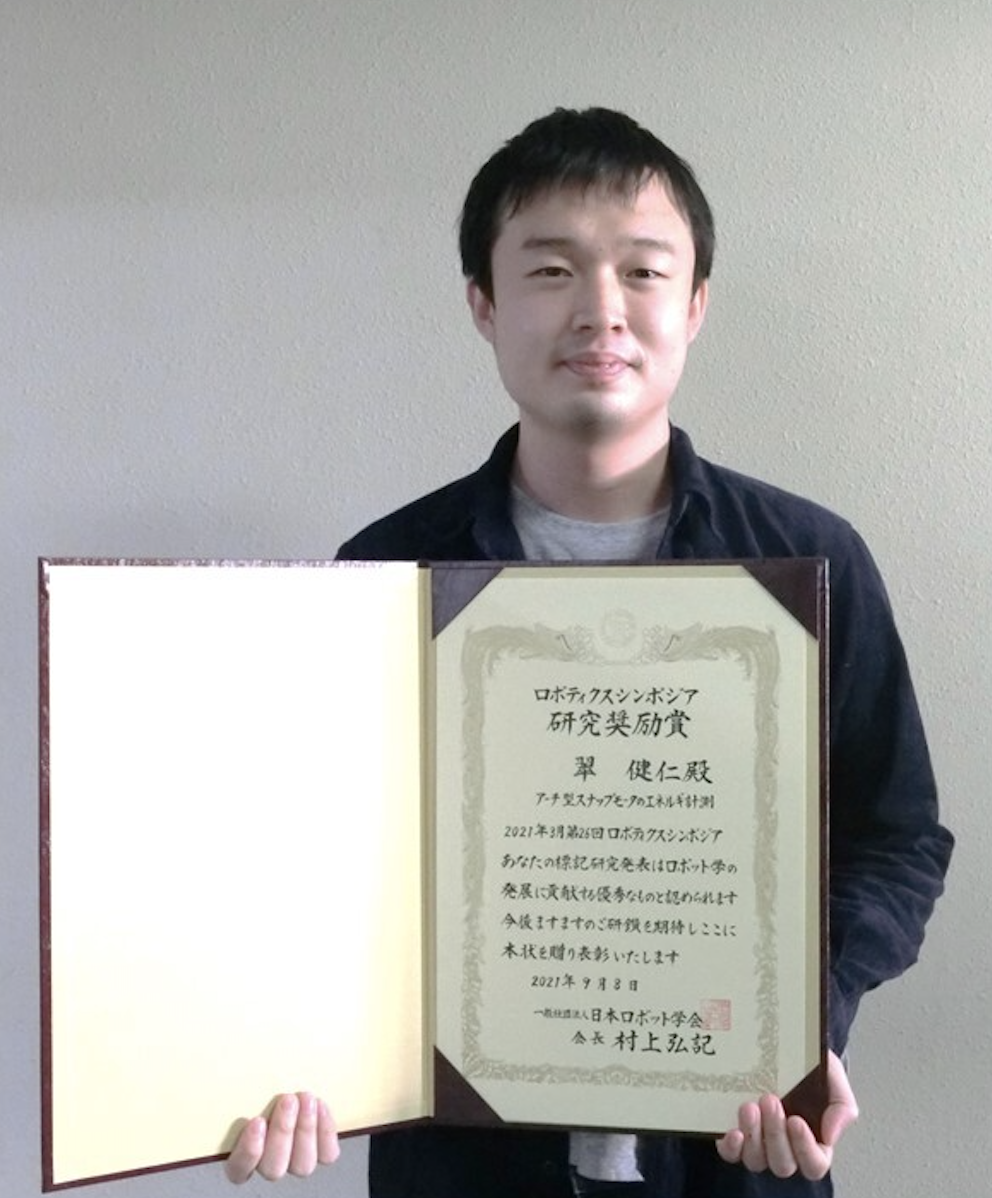 ロボティクスシンポジア
研究奨励賞
翠 健仁殿
アーチ型スナップモータのエネルギ計測
2021年3月第26回ロボティクスシンポジア
あなたの標記研究発表はロボット学の
発展に貢献する優秀なものと認められます
今後ますますのご研鑽を期待しここに
本状を贈り表彰いたします
2021年9月8日
一般社団法人日本ロボット学会
会長 村上弘記